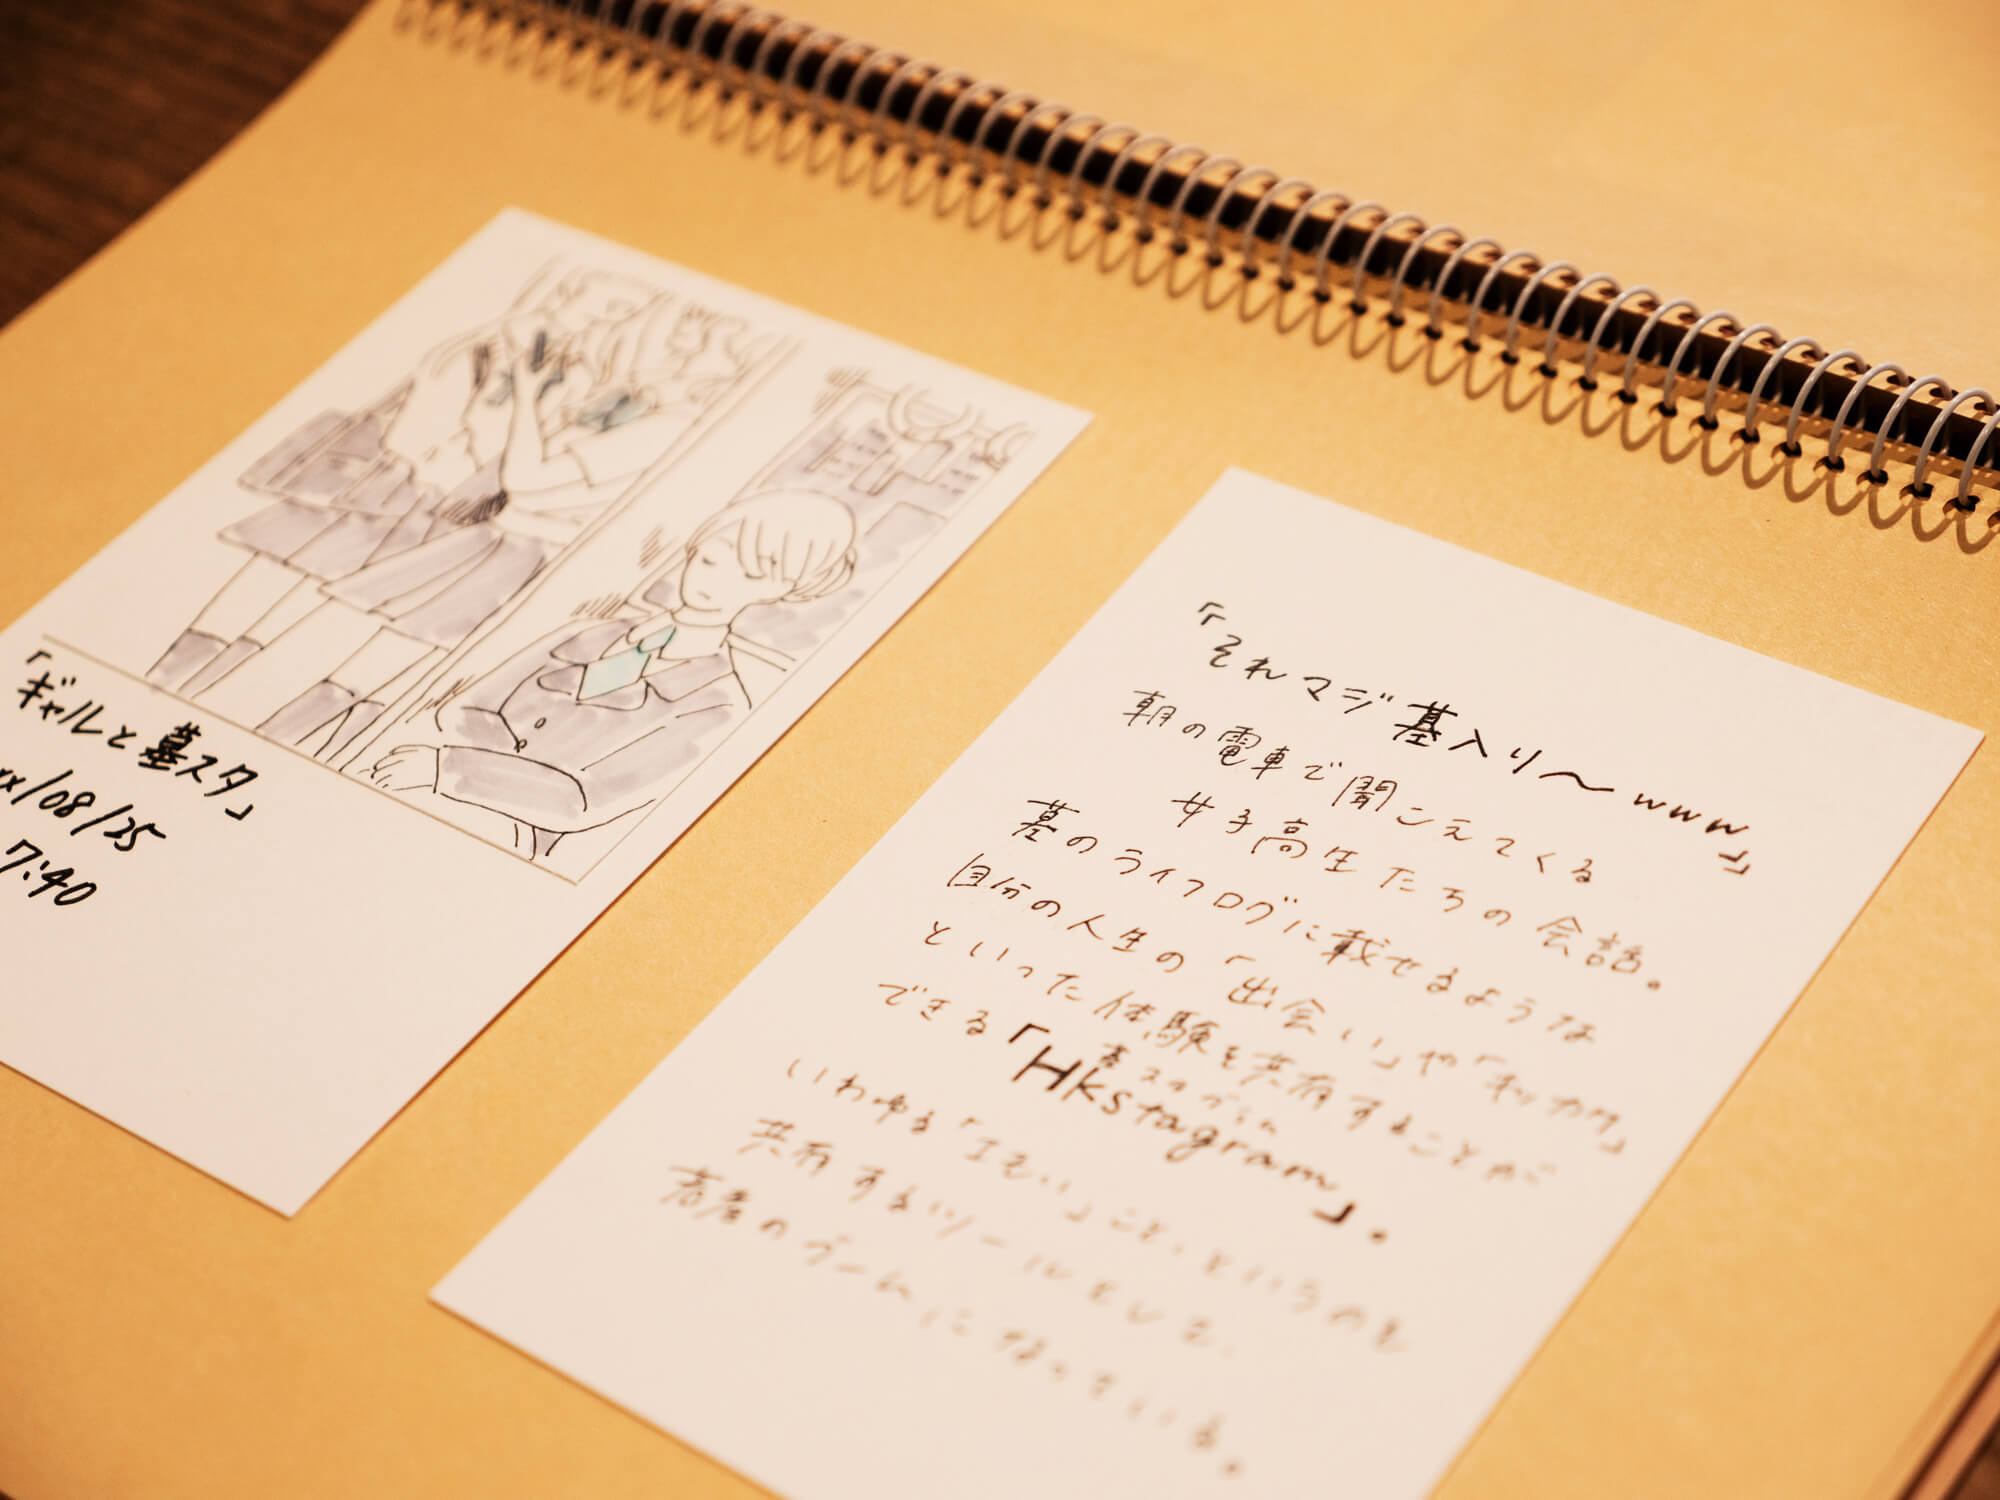 「ギャルと墓スタ」
xx/08/25
7:40
「それマジ墓入り〜www」
朝の電車で聞こえてくる
女子高生たちの会話。
墓のライフログに載せるような
自分の人生の「出会い」や「キッカケ」
といった体験を共有することが
できる「Hkstagram」。
いわゆる「エモい」こと、というのを
共有するツールとして、
若者のブームになっている。